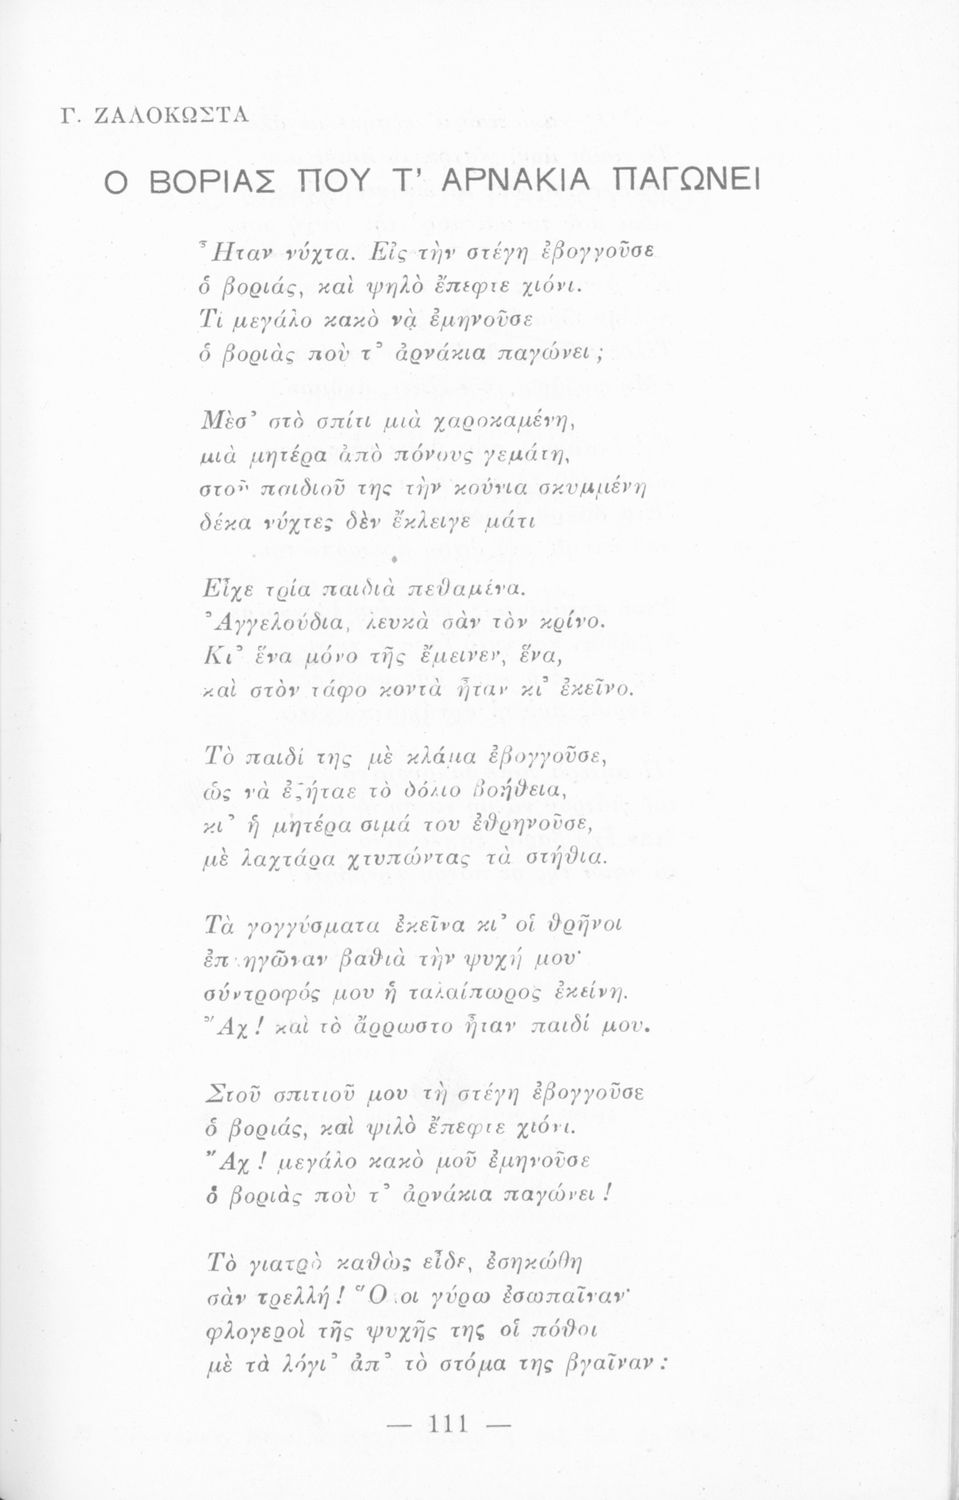 Γ. ΖΑΛΟΚΩΣΤΑ
Ο ΒΟΡΙΑΣ ΠΟΥ Τ' ΑΡΝΑΚΙΑ ΠΑΓΩΝΕΙ
Ἦταν νύχτα. Εἰς τὴν στέγη ἐβογγοῦσε
ὁ βοριάς, καὶ ψηλὸ ἔπεφτε χιόνι.
Τί μεγάλο κακὸ νὰ ἐμηνοῦσε
ὁ βοριὰς ποὺ τ' ἀρνάκια παγώνει ;
Μὲσ' στὸ σπίτι μιὰ χαροκαμένη,
μιὰ μητέρα ἀπὸ πόνους γεμάτη,
στοῦ παιδιοῦ της τὴν κούνια σκυμμένη
δέκα νύχτες δὲν ἔκλειγε μάτι
Εἶχε τρία παιδιὰ πεθαμένα.
Ἀγγελούδια, λευκὰ σὰν τὸν κρίνο.
Κι' ἕνα μόνο τῆς ἔμεινεν, ἕνα,
καὶ στὸν τάφο κοντὰ ἦταν κι' ἐκεῖνο.
Τὸ παιδί της μὲ κλάμα ἐβογγοῦσε,
ὡς νὰ ἐζήταε τὸ δόλιο βοήθεια,
κι' ἡ μητέρα σιμά του ἐθρηνοῦσε,
μὲ λαχτάρα χτυπώντας τὰ στήθια.
Τὰ γογγύσματα ἐκεῖνα κι' οἱ θρῆνοι
ἐπληγῶναν βαθιὰ τὴν ψυχή μου·
σύντροφός μου ἡ ταλαίπωρος ἐκείνη.
Ἄχ ! καὶ τὸ ἄρρωστο ἦταν παιδί μου.
Στοῦ σπιτιοῦ μου τὴ στέγη ἐβογγοῦσε
ὁ βοριάς, καὶ ψιλὸ ἔπεφτε χιόνι.
Ἄχ ! μεγάλο κακὸ μοῦ ἐμηνοῦσε
ὁ βοριὰς ποὺ τ' ἀρνάκια παγώνει !
Τὸ γιατρὸ καθὼς εἶδε, ἐσηκώθη
σὰν τρελλή ! Ὅλοι γύρω ἐσωπαῖναν·
φλογεροὶ τῆς ψυχῆς της οἱ πόθοι
μὲ τὰ λόγι' ἀπ' τὸ στόμα της βγαῖναν :
— 111 —